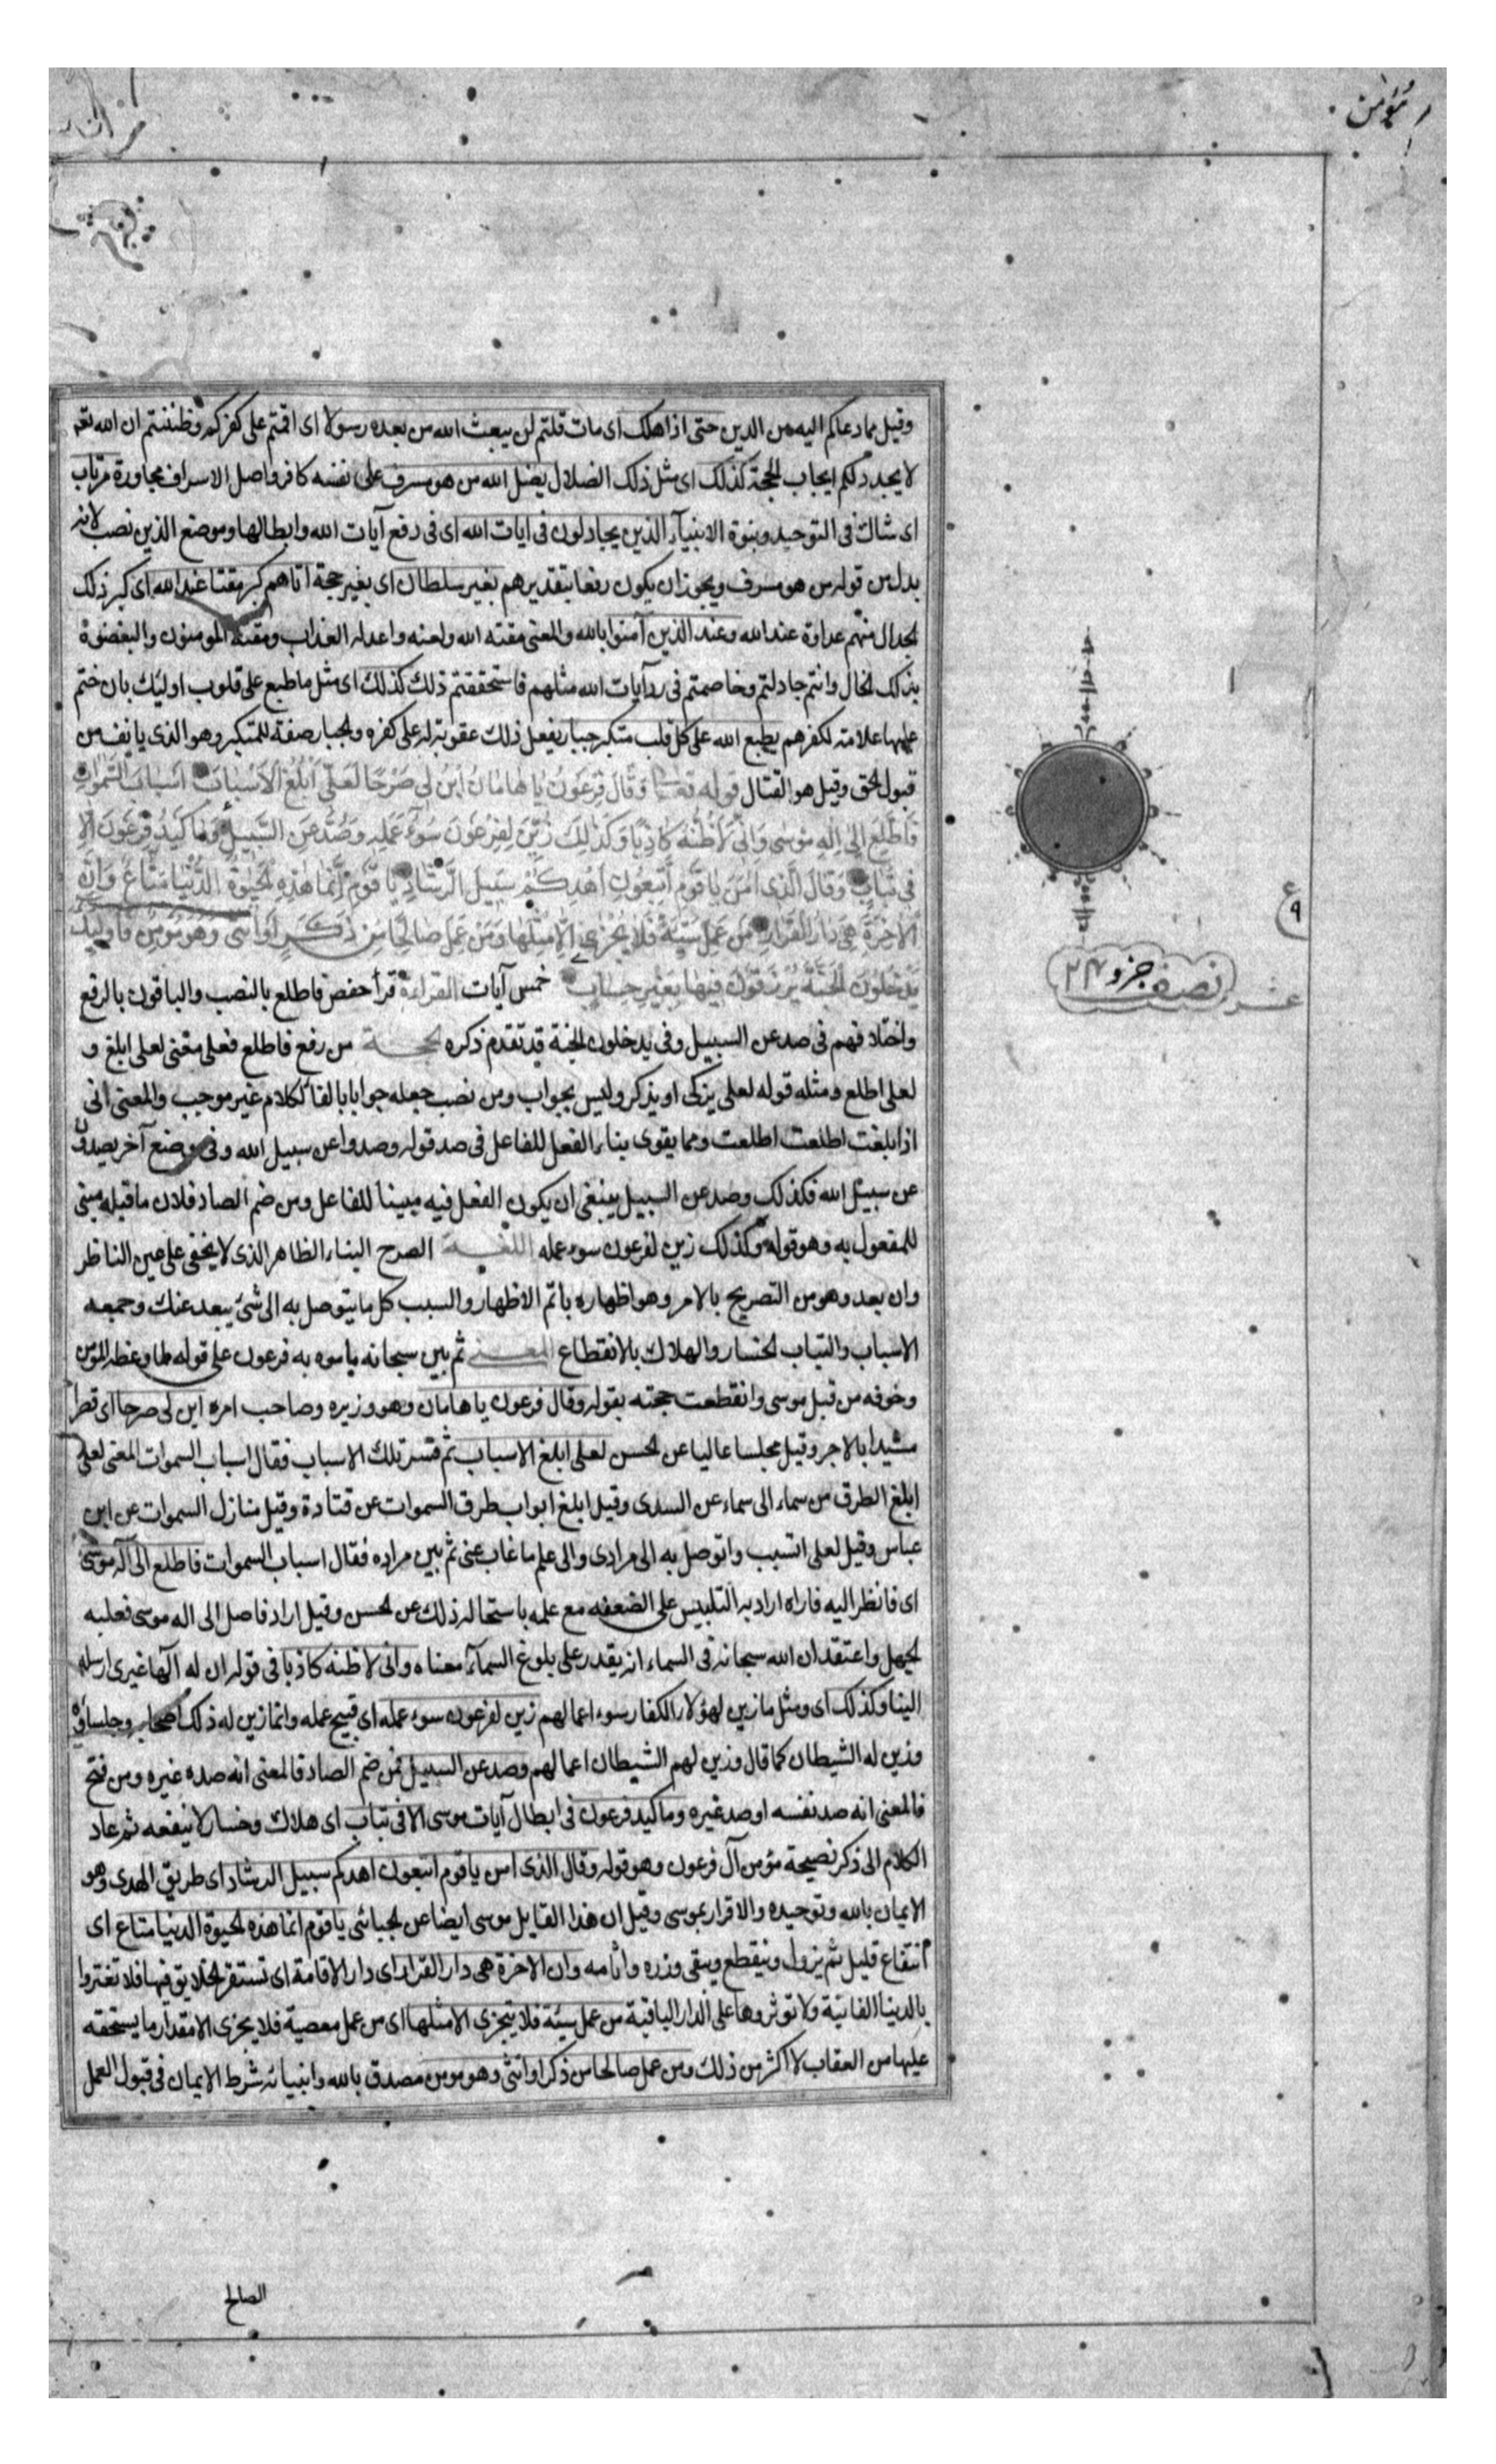 المؤمن
وقيل مما دعاكم اليه من الدين حتى اذا هلك اى مات قلتم لن يبعث الله من بعده رسولا اى اقمتم على كفركم وظننتم ان الله تعه
لا يجدد لكم ايجاب الحجة كذلك اى مثل ذلك الضلال يضل الله من هو مسرف على نفسه كافر واصل الاسراف مجاوزة مرتاب
اى شاك فى التوحيد ونبوة الانبيآء الذين يجادلون فى ايات الله اى فى رفع آيات الله وابطالها وموضع الذين نصب لانه
بدل من قوله من هو مسرف ويجوز ان يكون رفعا بتقديرهم بغير سلطان اى بغير حجة اتاهم كبر مقتا عند الله اى كبر ذلك
الجدال منهم عداوة عند الله وعند الذين آمنوا بالله والمعنى مقته الله ولعنه واعد له العذاب ومقته المومنون وابغضوه
بذلك الجدال وانتم جادلتم وخاصمتم فى رد آيات الله مثلهم فاستحققتم ذلك كذلك اى مثل ما طبع على قلوب اوليك بان ختم
عليها علامة لكفرهم يطبع الله على كل قلب متكبر جبار يفعل ذلك عقوبة له على كفره والجبار صفة للمتكبر وهو الذى يانف من
قبول الحق وقيل هو القتال قوله تعا وَقَالَ فِرْعَوْنُ يَا هَامَانُ ابْنِ لِى صَرْحًا لَعَلِّى أَبْلُغُ الْأَسْبَابَ اَسْبَابَ السَّمٰوَاتِ
فَاَطَّلِعَ اِلٰى اِلٰهِ مُوسٰى وَاِنِّى لَأَظُنُّهُ كَاذِبًا وَكَذٰلِكَ زُيِّنَ لِفِرْعَوْنَ سُوۤءُ عَمَلِهِ وَصُدَّ عَنِ السَّبِيلِ وَمَا كَيْدُ فِرْعَوْنَ اِلَّا
فِى تَبَابٍ وَقَالَ الَّذِى اٰمَنَ يَا قَوْمِ اتَّبِعُونِ اَهْدِكُمْ سَبِيلَ الرَّشَادِ يَا قَوْمِ اِنَّمَا هٰذِهِ الْحَيٰوةُ الدُّنْيَا مَتَاعٌ وَاِنَّ
الْاٰخِرَةَ هِىَ دَارُ الْقَرَارِ مَنْ عَمِلَ سَيِّئَةً فَلَا يُجْزٰى اِلَّا مِثْلَهَا وَمَنْ عَمِلَ صَالِحًا مِنْ ذَكَرٍ اَوْ اُنْثٰى وَهُوَ مُؤْمِنٌ فَاُولٰئِكَ
يَدْخُلُونَ الْجَنَّةَ يُرْزَقُونَ فِيهَا بِغَيْرِ حِسَابٍ خمس آيات القراءة قرأ حفص فاطلع بالنصب والباقون بالرفع
واختلافهم فى صد عن السبيل وفى يدخلون الجنة قد تقدم ذكره الحجة من رفع فاطلع فعلى معنى لعلى ابلغ و
لعلى اطلع ومثله قوله لعلى يزكى او يذكر وليس بجواب ومن نصب جعله جوابا بالفا لكلام غير موجب والمعنى انى
اذا بلغت اطلعت ومما يقوى بناء الفعل للفاعل فى صد قوله وصدوا عن سبيل الله وفى موضع آخر يصدون
عن سبيل الله فكذلك وصد عن السبيل ينبغى ان يكون الفعل فيه مبينا للفاعل ومن ضم الصاد فلان ما قبله مبنى
للمفعول به وهو قوله وكذلك زين لفرعون سوء عمله اللغة الصرح البناء الظاهر الذى لا يخفى على عين الناظر
وان بعد وهو من التصريح بالامر وهو اظهاره باتم الاظهار والسبب كل ما يتوصل به الى شئ يبعد عنك وجمعه
الاسباب والتباب الخسار والهلاك بالانقطاع المعنى ثم بين سبحانه ما موه به فرعون على قومه لما وعظه المؤمن
وخوفه من قبل موسى وانقطعت حجته بقوله وقال فرعون يا هامان وهو وزيره وصاحب امره ابن لى صرحا اى قصرا
مشيدا بالاجر وقيل مجلسا عاليا عن الحسن لعلى ابلغ الاسباب ثم فسر تلك الاسباب فقال اسباب السموات المعنى لعلى
ابلغ الطرق من سماء الى سماء عن السدى وقيل ابلغ ابواب طرق السموات عن قتادة وقيل منازل السموات عن ابن
عباس وقيل لعلى اتسبب واتوصل به الى مرادى والى علم ما غاب عنى ثم بين مراده فقال اسباب السموات فاطلع الى اله موسى
اى فانظر اليه فاراه اراد به التلبيس على الضعفه مع علمه باستحالة ذلك عن الحسن وقيل اراد فاصل الى اله موسى فغلبه
الجهل واعتقد ان الله سبحانه فى السماء انه يقدر على بلوغ السمآء معناه وانى لاظنه كاذبا فى قوله ان له آلها غيرى ارسله
الينا وكذلك اى ومثل ما زين لهؤلاء الكفار سوء اعمالهم زين لفرعون سوء عمله اى قبيح عمله وانما زين له ذلك اصحابه وجلساؤه
وزين له الشيطان كما قال وزين لهم الشيطان اعمالهم وصد عن السبيل فمن ضم الصاد فالمعنى انه صده غيره ومن فتح
فالمعنى انه صد نفسه او صد غيره وما كيد فرعون فى ابطال آيات موسى الا فى تباب اى هلاك وخسار لا ينفعه ثم عاد
الكلام الى ذكر نصيحة مؤمن آل فرعون وهو قوله وقال الذى امن يا قوم اتبعون اهدكم سبيل الرشاد اى طريق الهدى وهو
الايمان بالله وتوحيده والاقرار بموسى وقيل ان هذا القايل موسى ايضا عن الجبائى يا قوم انما هذه الحيوة الدنيا متاع اى
انتفاع قليل ثم يزول وينقطع ويبقى وزره واثامه وان الاخرة هى دار القرار اى دار الاقامة اى تستقر الخلايق فيها فلا تغتروا
بالدنيا الفانية ولا توثروها على الدار الباقية من عمل سيئة فلا يجزى الا مثلها اى من عمل معصية فلا يجزى الا مقدار ما يستحقه
عليها من العقاب لا اكثر من ذلك ومن عمل صالحا من ذكر او انثى وهو مومن مصدق بالله وانبيائه شرط الايمان فى قبول العمل
ع
٩
نصف جزو ٢٤
عشر
الصالح